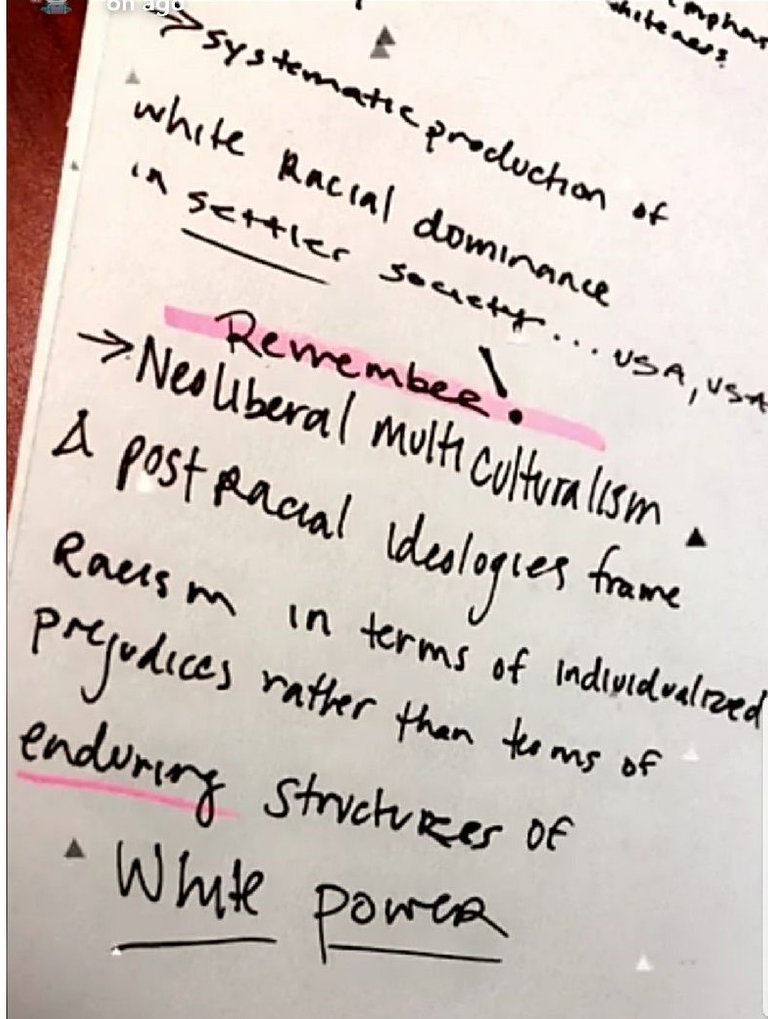 on ago
emphas
whiteness.
→ systematic production of
white racial dominance
in settler society... USA, USA
Remember!
→ Neoliberal multiculturalism
& post racial ideologies frame
Racism in terms of individualized
prejudices rather than terms of
enduring structures of
White power